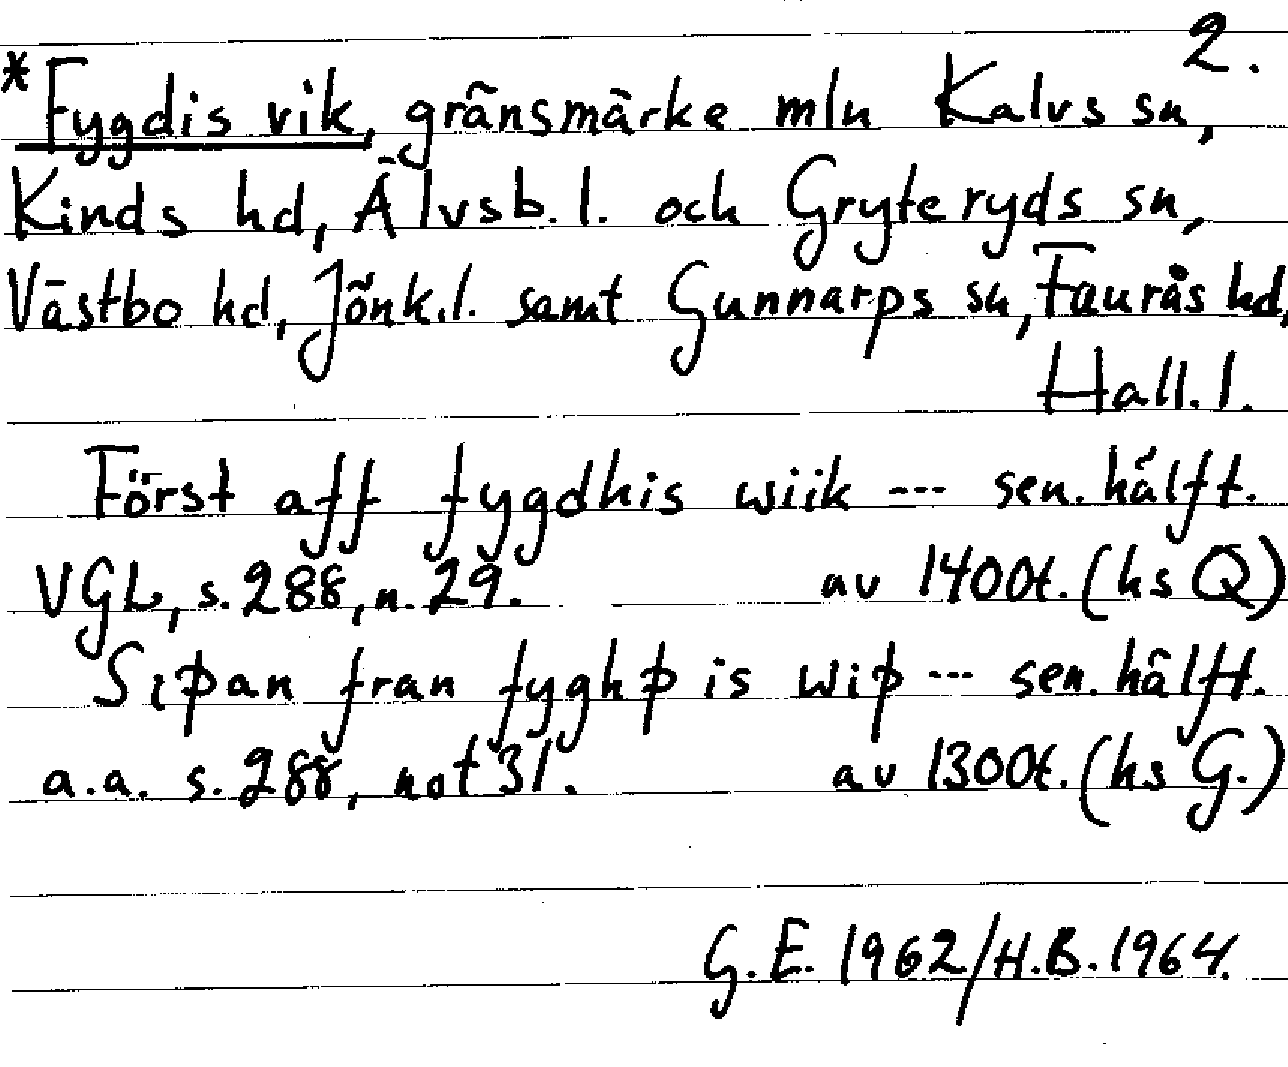 2.
*Fygdis vik, gränsmärke mln Kalvs sn,
Kinds hd, Älvsb. l. och Gryteryds sn,
Västbo hd, Jönk. l. samt Gunnarps sn, Faurås hd,
Hall. l.
Först aff fygdhis wiik --- sen. hälft.
VGL, s. 288, n. 29. av 1400t. (hs Q)
Siþan fran fyghþis wiþ --- sen. hälft.
a.a. s. 288, not 31. av 1300t. (hs G.)
G.E. 1962/H.B. 1964.